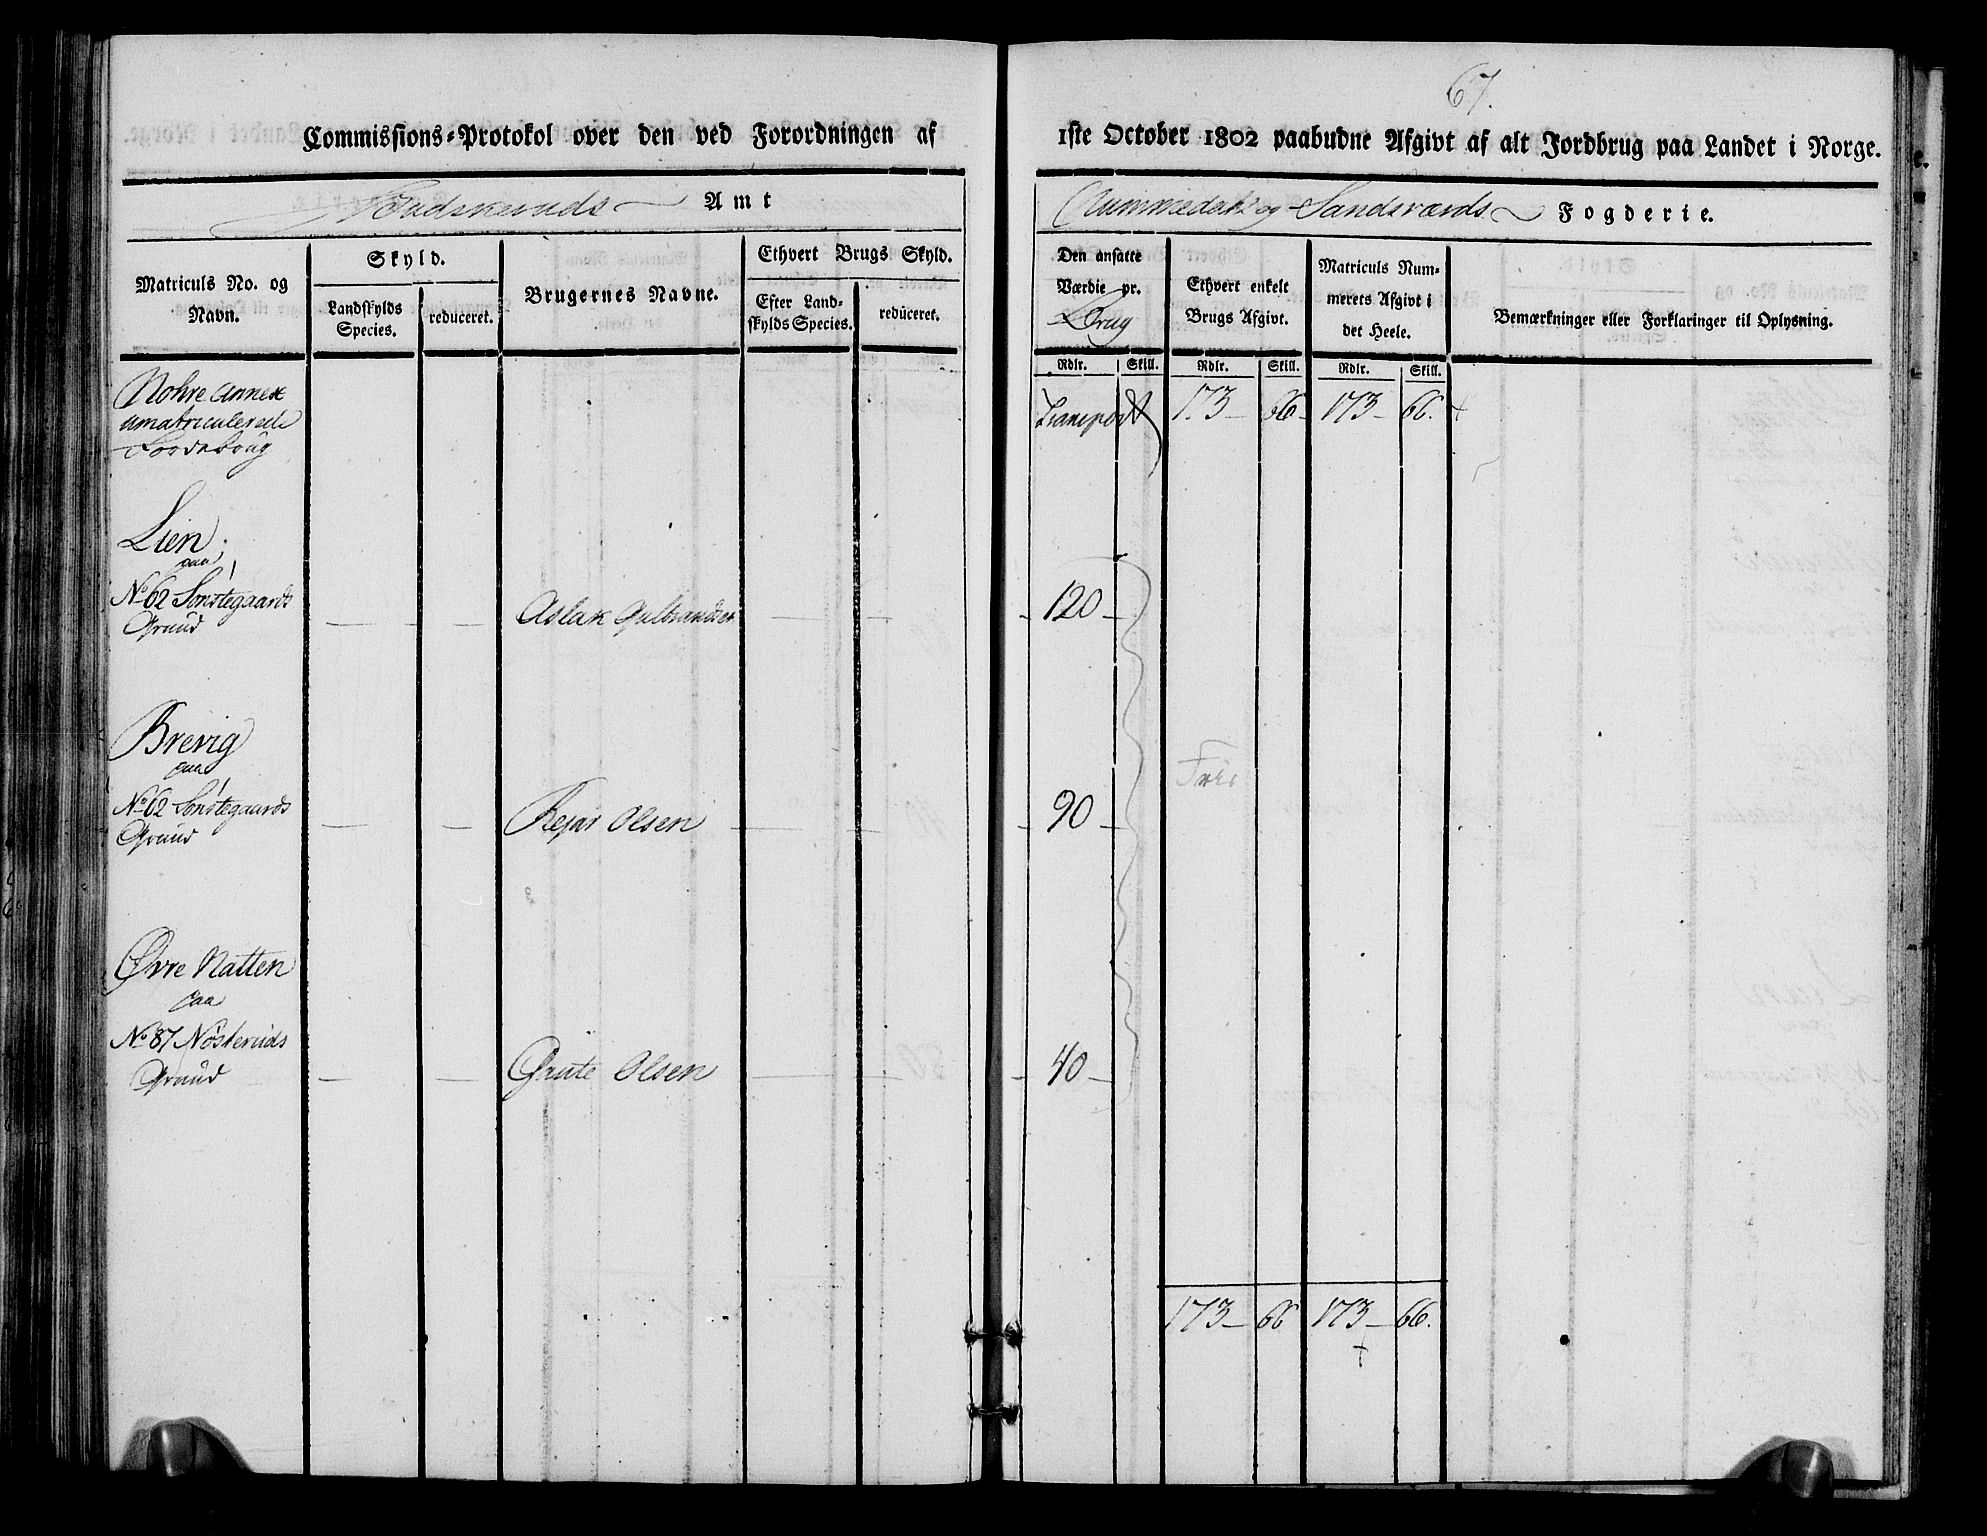 67.
Commissions-Protokol over den ved Forordningen af 1ste October 1802 paabudne Afgivt af alt Jordbrug paa Landet i Norge.
Budskeruds Amt
Nummedals og Sandsværds Fogderie.
Matriculs No. og Navn.
Skyld.
Landskylds Species.
reduceret.
Brugernes Navne.
Ethvert Brugs Skyld.
Efter Landskylds Species.
reduceret.
Den ansatte Værdie pr. Brug
Ethvert enkelt Brugs Afgivt.
Matriculs Nummerets Afgivt i det Heele.
Bemærkninger eller Forklaringer til Oplysning.
Rdlr. Skill. Rdlr. Skill. Rdlr. Skill.
Nohre Annex
umatriculerede
Jordebrug
Transport 173 66 173 66.
Lien
paa
No 62 Sønstegaards
Grund — — Aslak Gulbrandsen — — 120 —
Brevig
paa
No 62 Sønstegaards
Grund — — Rejar Olsen — — 90 —
Frie
Øvre Natten
paa
No 87 Nøsteruds
Grund — — Grute Olsen — — 40 —
173 66 173 66.